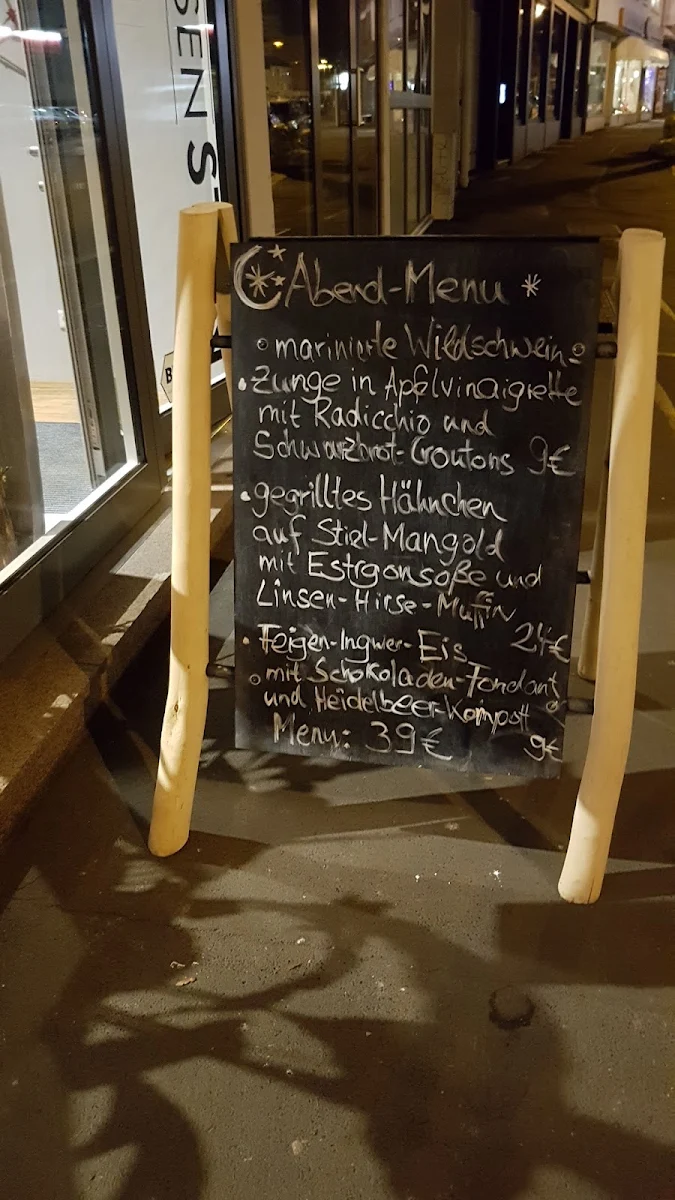 SENS
Abend-Menu
marinierte Wildschwein-
Zunge in Apfelvinaigrette
mit Radicchio und
Schwarzbrot-Croutons 9€
gegrilltes Hähnchen
auf Stiel-Mangold
mit Estrgonsoße und
Linsen-Hirse-Muffin
24€
Feigen-Ingwer-Eis
mit Schokoladen-Fondant
und Heidelbeer-Kompott
9€
Menu: 39€